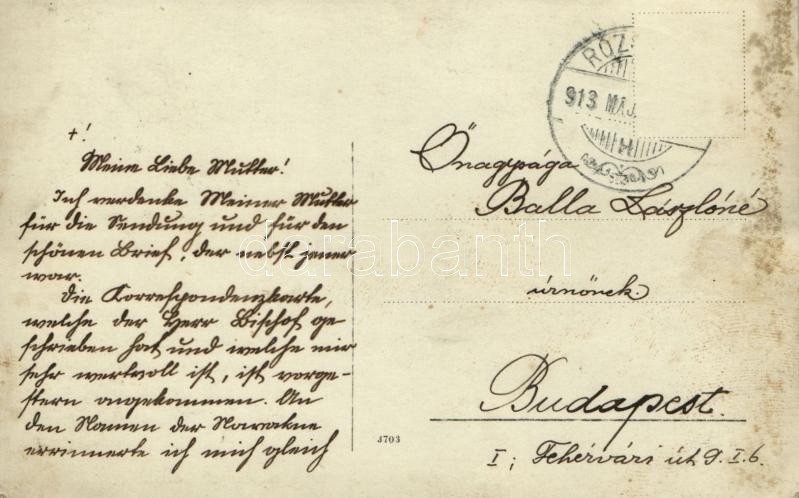 +!
Meine Liebe Mutter!
Ich verdenke Meiner Mutter
für die Sendung und für den
schönen Brief, der nebst jener
war.
Die Korrespondenzkarte,
welche der Herr Bischof ge
schrieben hat und welche mir
sehr wertvoll ist, ist vorge-
stern angekommen. An
den Namen der
errinnerte ich mich gleich
RÓZS
913 MÁJ.
Őnagysága
Balla Lászlóné
úrnőnek.
Budapest.
I; Fehérvári út 9. I. 6.
J703
darabanth